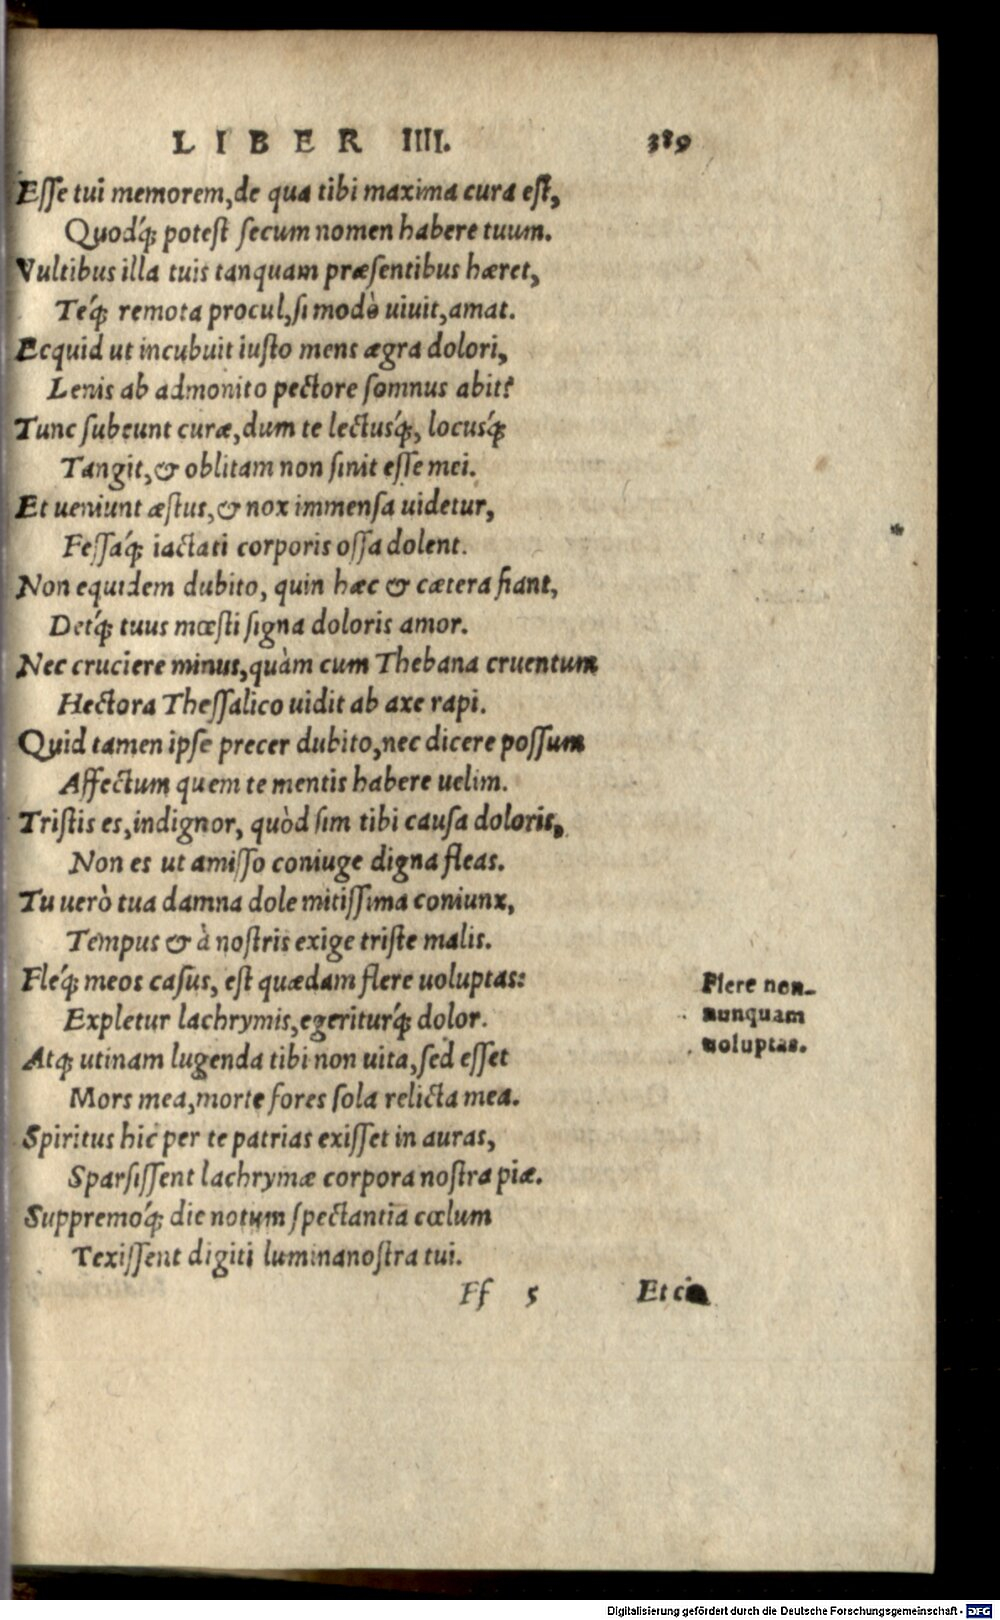 LIBER IIII. 389
Esse tui memorem, de qua tibi maxima cura est,
Quodq́; potest secum nomen habere tuum.
Vultibus illa tuis tanquam præsentibus hæret,
Teq́; remota procul, si modò uiuit, amat.
Ecquid ut incubuit iusto mens ægra dolori,
Lenis ab admonito pectore somnus abit?
Tunc subeunt curæ, dum te lectusq́;, locusq́;
Tangit, & oblitam non sinit esse mei.
Et ueniunt æstus, & nox immensa uidetur,
Fessaq́; iactati corporis ossa dolent.
Non equidem dubito, quin hæc & cætera fiant,
Detq́; tuus mœsti signa doloris amor.
Nec cruciere minus, quàm cum Thebana cruentum
Hectora Thessalico uidit ab axe rapi.
Quid tamen ipse precer dubito, nec dicere possum
Affectum quem te mentis habere uelim.
Tristis es, indignor, quòd sim tibi causa doloris,
Non es ut amisso coniuge digna fleas.
Tu uerò tua damna dole mitissima coniunx,
Tempus & à nostris exige triste malis.
Fleq́; meos casus, est quædam flere uoluptas:
Expletur lachrymis, egeriturq́; dolor.
Atq; utinam lugenda tibi non uita, sed esset
Mors mea, morte fores sola relicta mea.
Spiritus hic per te patrias exisset in auras,
Sparsissent lachrymæ corpora nostra piæ.
Suppremoq́; die notum spectantia cœlum
Texissent digiti lumina nostra tui.
Flere non-
nunquam
uoluptas.
Ff 5 Et
Digitalisierung gefördert durch die Deutsche Forschungsgemeinschaft - DFG